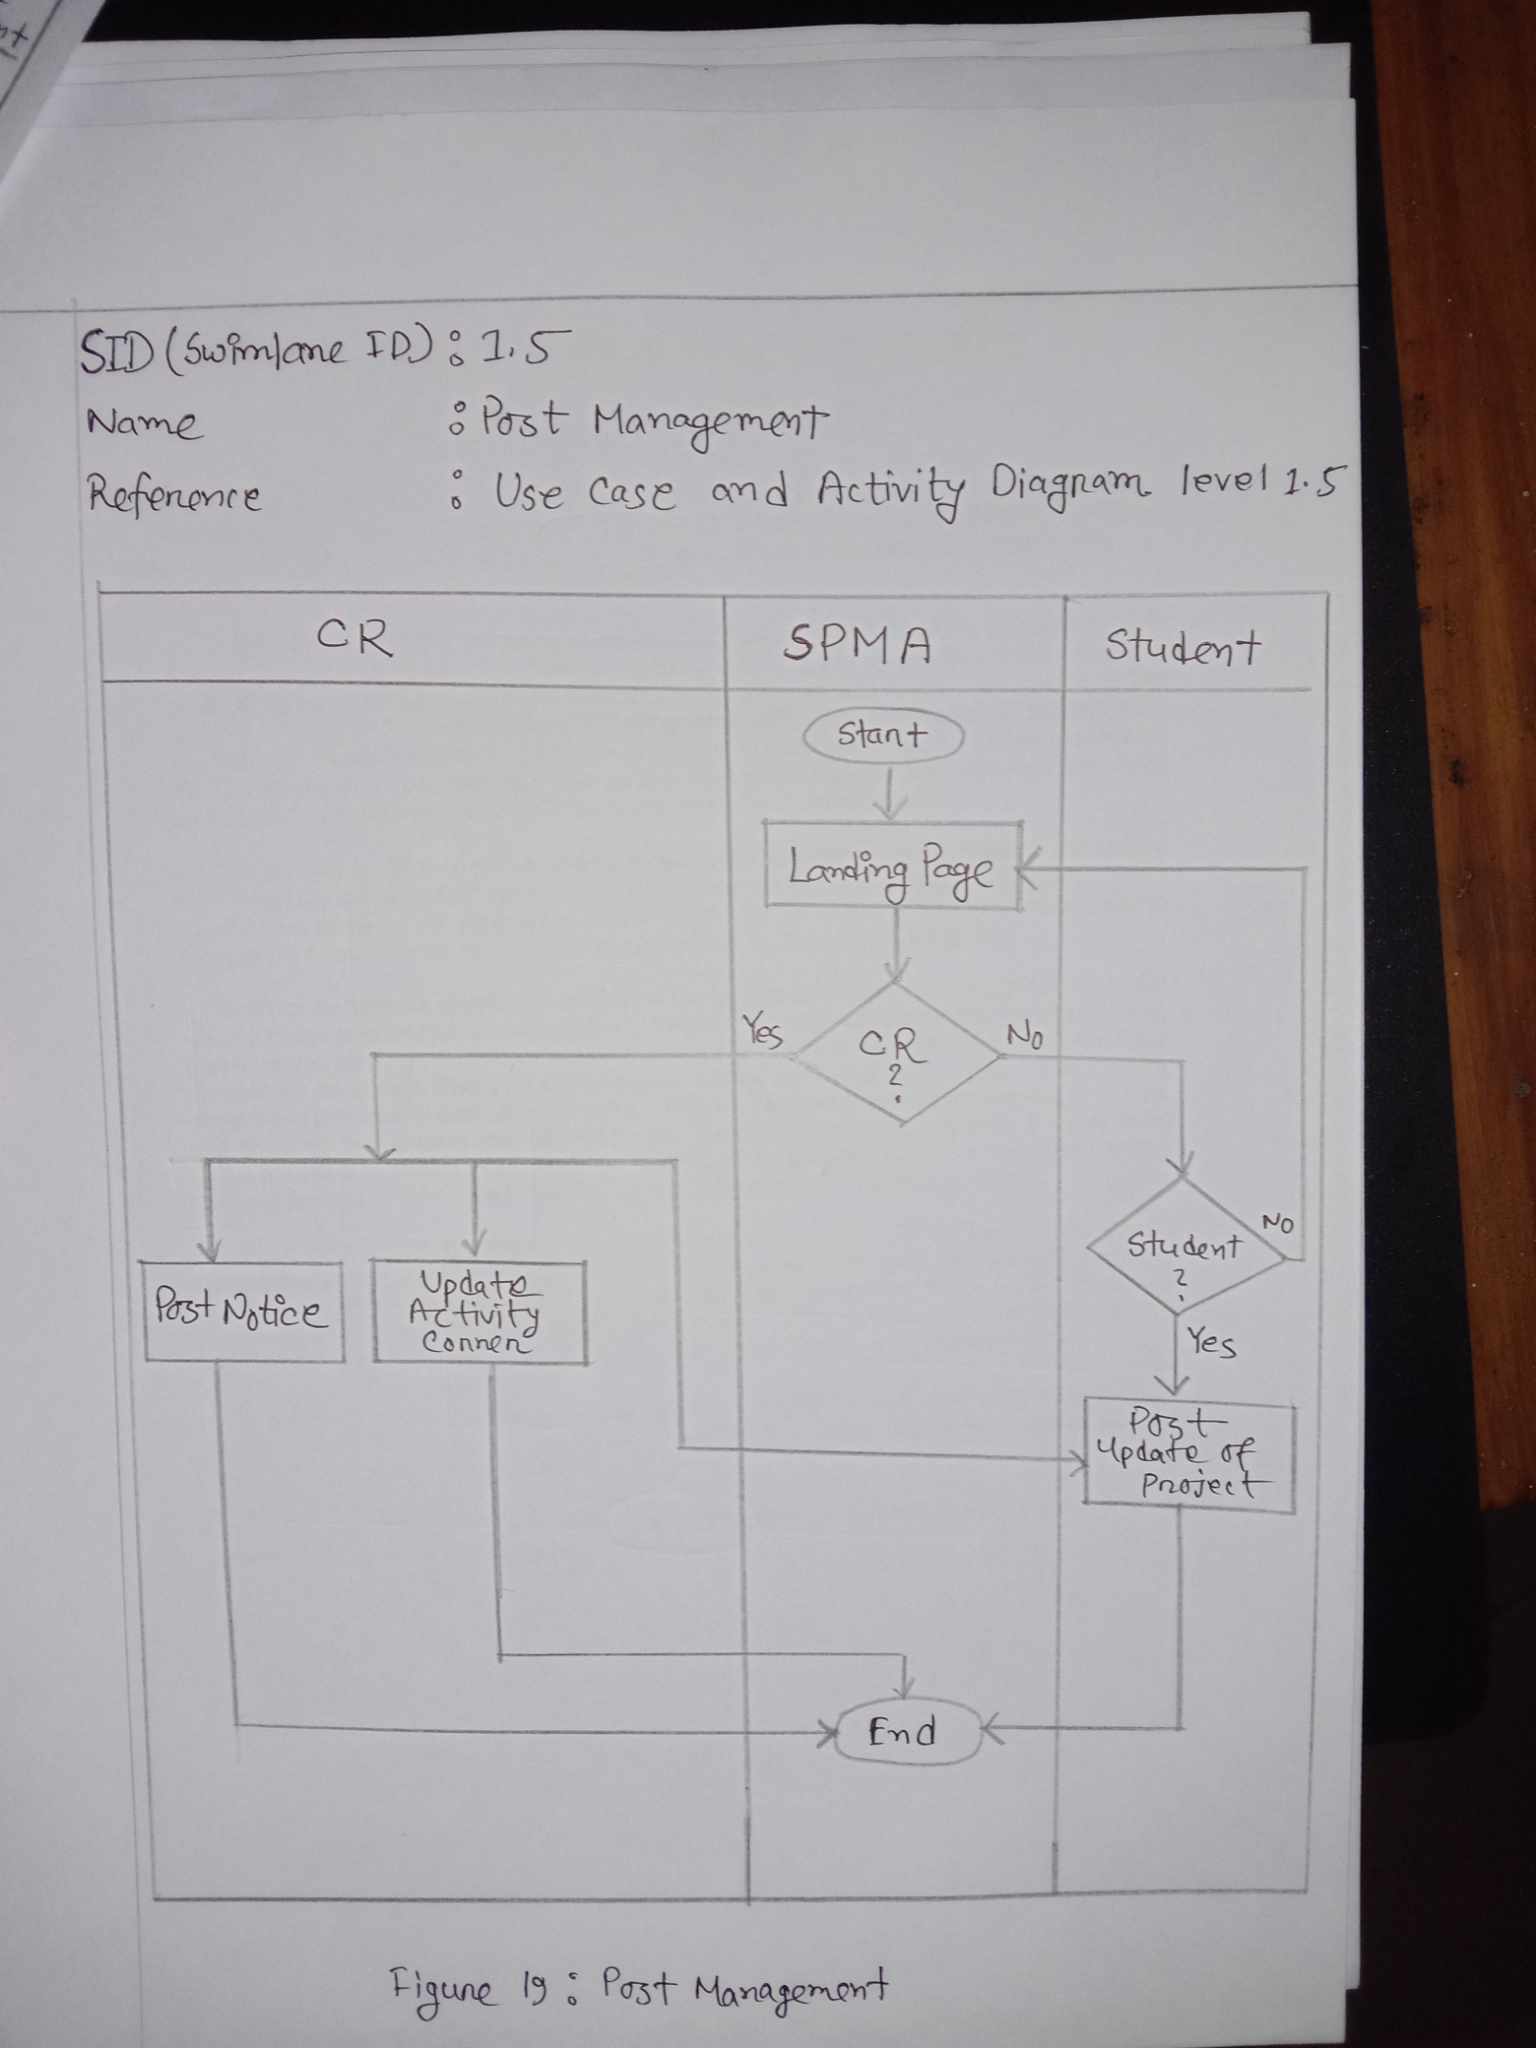 SID (Swimlane ID) : 1.5
Name : Post Management
Reference : Use Case and Activity Diagram level 1.5
CR SPMA Student
Start
Landing Page
Yes CR ? No
Student ? No
Post Notice
Update
Activity
Corner
Yes
Post
Update of
Project
End
Figure 19 : Post Management